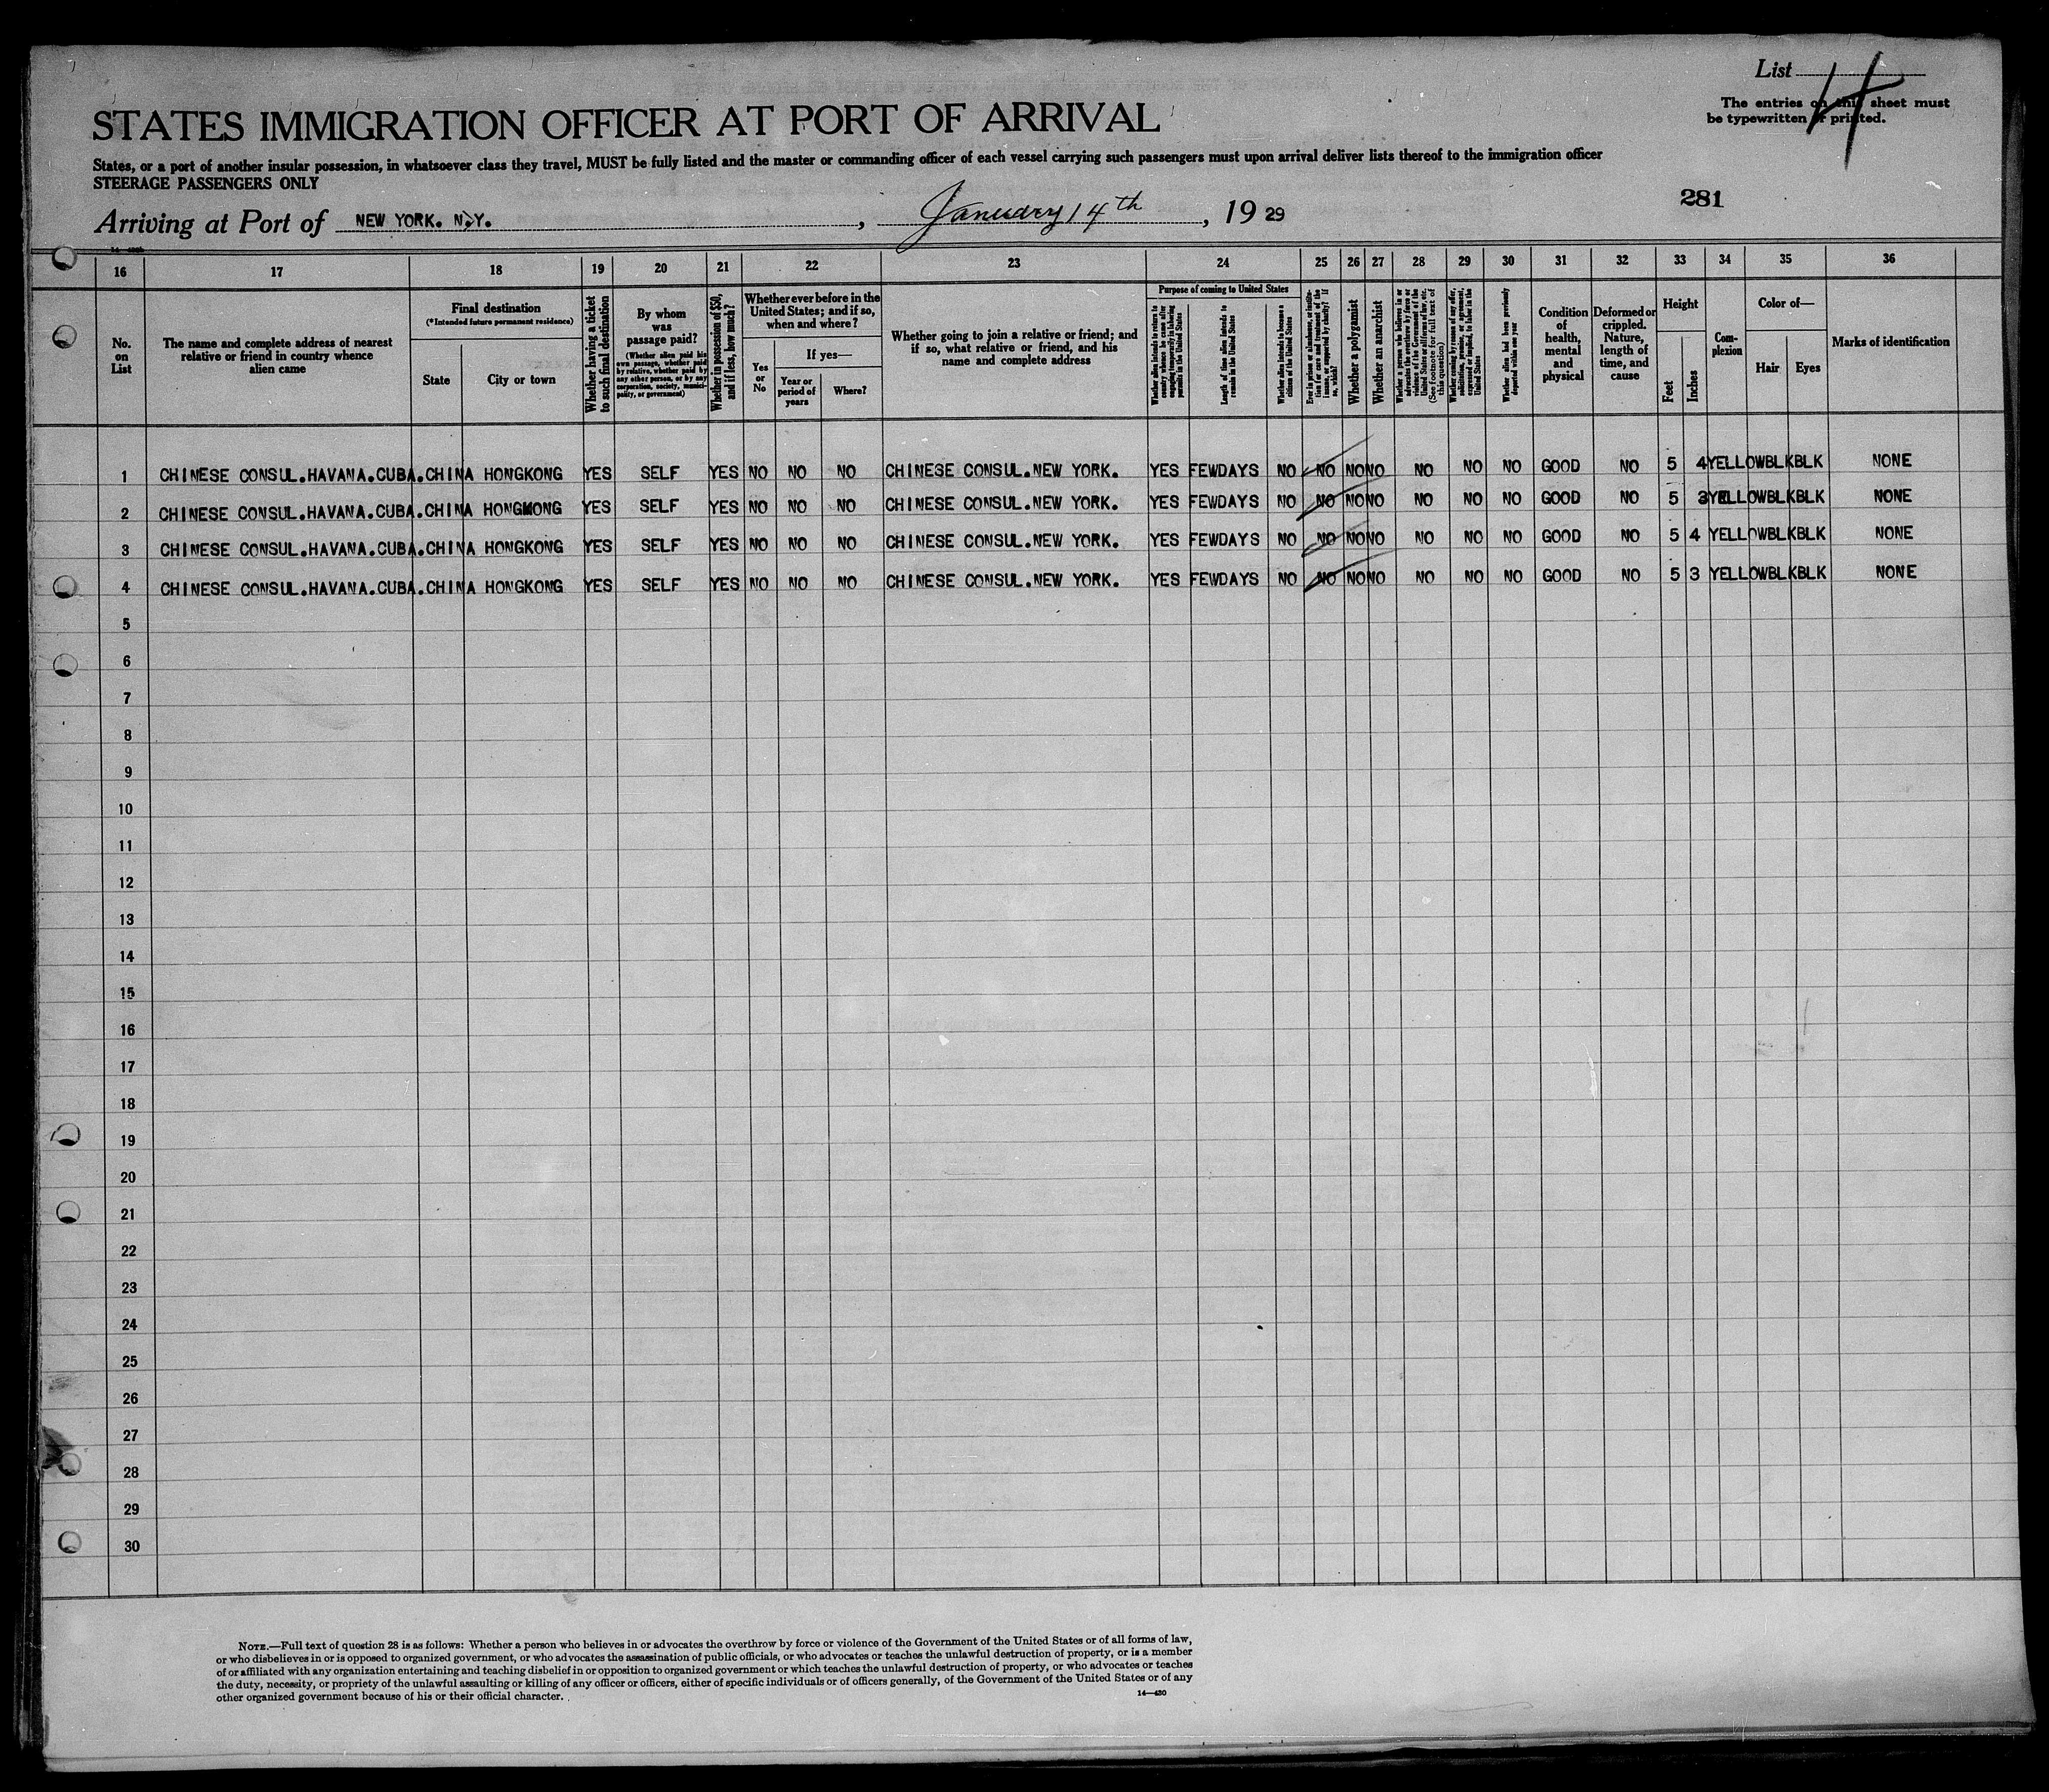 List 4
The entries on this sheet must
be typewritten or printed.
STATES IMMIGRATION OFFICER AT PORT OF ARRIVAL
States, or a port of another insular possession, in whatsoever class they travel, MUST be fully listed and the master or commanding officer of each vessel carrying such passengers must upon arrival deliver lists thereof to the immigration officer
STEERAGE PASSENGERS ONLY
281
Arriving at Port of NEW YORK. N.Y. , January 14th , 19 29
16 17 18 19 20 21 22 23 24 25 26 27 28 29 30 31 32 33 34 35 36
No.
on
List
The name and complete address of nearest
relative or friend in country whence
alien came
Final destination
(*Intended future permanent residence)
State City or town
Whether having a ticket
to such final destination
By whom
was
passage paid?
(Whether alien paid his
own passage, whether paid
by relative, whether paid by
any other person, or by any
corporation, society, munici-
pality, or government)
Whether in possession of $50,
and if less, how much?
Whether ever before in the
United States; and if so,
when and where?
Yes
or
No
If yes—
Year or
period of
years
Where?
Whether going to join a relative or friend; and
if so, what relative or friend, and his
name and complete address
Purpose of coming to United States
Whether alien intends to return to
country whence he came after
engaging temporarily in laboring
pursuits in the United States
Length of time alien intends to
remain in the United States
Whether alien intends to become a
citizen of the United States
Ever in prison or almshouse, or institu-
tion for care and treatment of the
insane, or supported by charity? If
so, which?
Whether a polygamist
Whether an anarchist
Whether a person who believes in or
advocates the overthrow by force or
violence of the Government of the
United States or all forms of law, etc.
(See footnote for full text of
this question)
Whether coming by reason of any offer,
solicitation, promise, or agreement,
expressed or implied, to labor in the
United States
Whether alien had been previously
deported within one year
Condition
of
health,
mental
and
physical
Deformed or
crippled.
Nature,
length of
time, and
cause
Height
Feet
Inches
Com-
plexion
Color of—
Hair Eyes
Marks of identification
1 CHINESE CONSUL.HAVANA.CUBA.CHINA HONGKONG YES SELF YES NO NO NO CHINESE CONSUL.NEW YORK. YES FEWDAYS NO NO NO NO NO NO NO GOOD NO 5 4 YELLOW BLK BLK NONE
2 CHINESE CONSUL.HAVANA.CUBA.CHINA HONGKONG YES SELF YES NO NO NO CHINESE CONSUL.NEW YORK. YES FEWDAYS NO NO NO NO NO NO NO GOOD NO 5 3 YELLOW BLK BLK NONE
3 CHINESE CONSUL.HAVANA.CUBA.CHINA HONGKONG YES SELF YES NO NO NO CHINESE CONSUL.NEW YORK. YES FEWDAYS NO NO NO NO NO NO NO GOOD NO 5 4 YELLOW BLK BLK NONE
4 CHINESE CONSUL.HAVANA.CUBA.CHINA HONGKONG YES SELF YES NO NO NO CHINESE CONSUL.NEW YORK. YES FEWDAYS NO NO NO NO NO NO NO GOOD NO 5 3 YELLOW BLK BLK NONE
5
6
7
8
9
10
11
12
13
14
15
16
17
18
19
20
21
22
23
24
25
26
27
28
29
30
NOTE.—Full text of question 28 is as follows: Whether a person who believes in or advocates the overthrow by force or violence of the Government of the United States or of all forms of law,
or who disbelieves in or is opposed to organized government, or who advocates the assassination of public officials, or who advocates or teaches the unlawful destruction of property, or is a member
of or affiliated with any organization entertaining and teaching disbelief in or opposition to organized government or which teaches the unlawful destruction of property, or who advocates or teaches
the duty, necessity, or propriety of the unlawful assaulting or killing of any officer or officers, either of specific individuals or of officers generally, of the Government of the United States or of any
other organized government because of his or their official character.
14—430